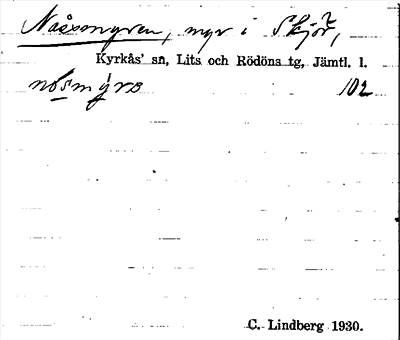 Nåsmyren, myr i Skjör,
Kyrkås' sn, Lits och Rödöns tg, Jämtl. l.
nosmyrɐ 102
C. Lindberg 1930.